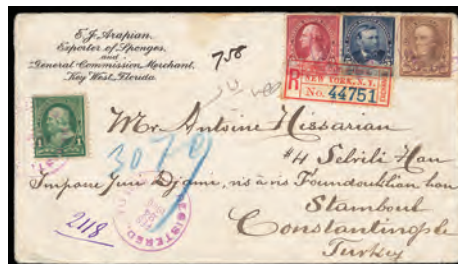 E. J. Arapian,
Exporter of Sponges,
and
General Commission Merchant,
Key West, Florida.
758
R
NEW YORK, N.Y.
No. 44751
Mr Antoine Hissarian
3079
#4 Selvili Han
Impasse Jeni Djami, vis à vis Foundouklian han
Stamboul
Constantinople
Turkey
2118
REGISTERED
FEB